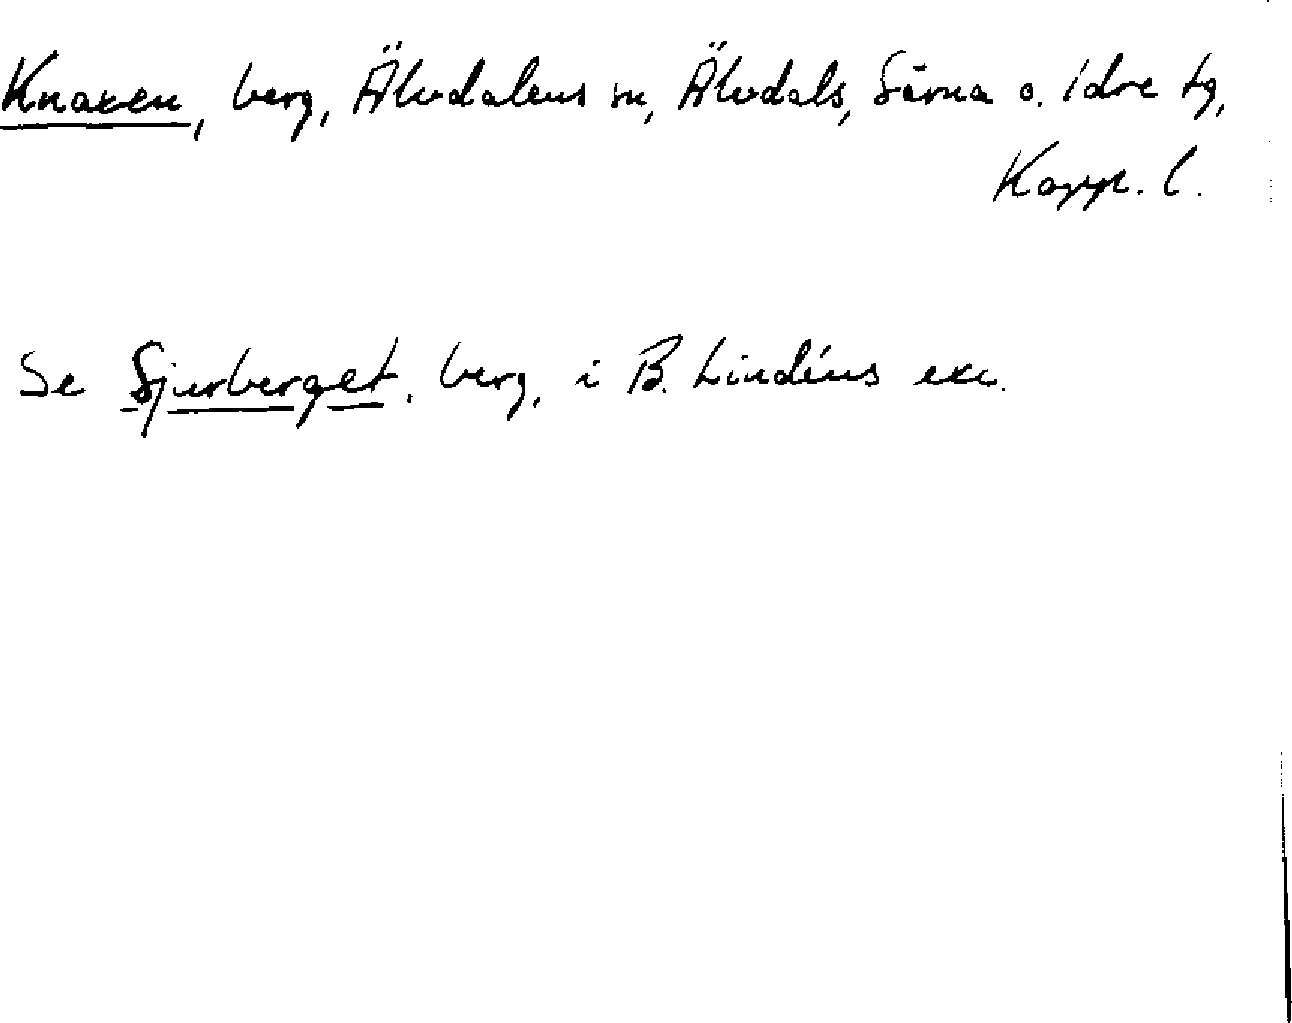 Knaxen, berg, Älvdalens sn, Älvdals, Särna o. Idre tg,
Kopp. l.
Se Sjurberget, berg, i B. Lindéns exc.